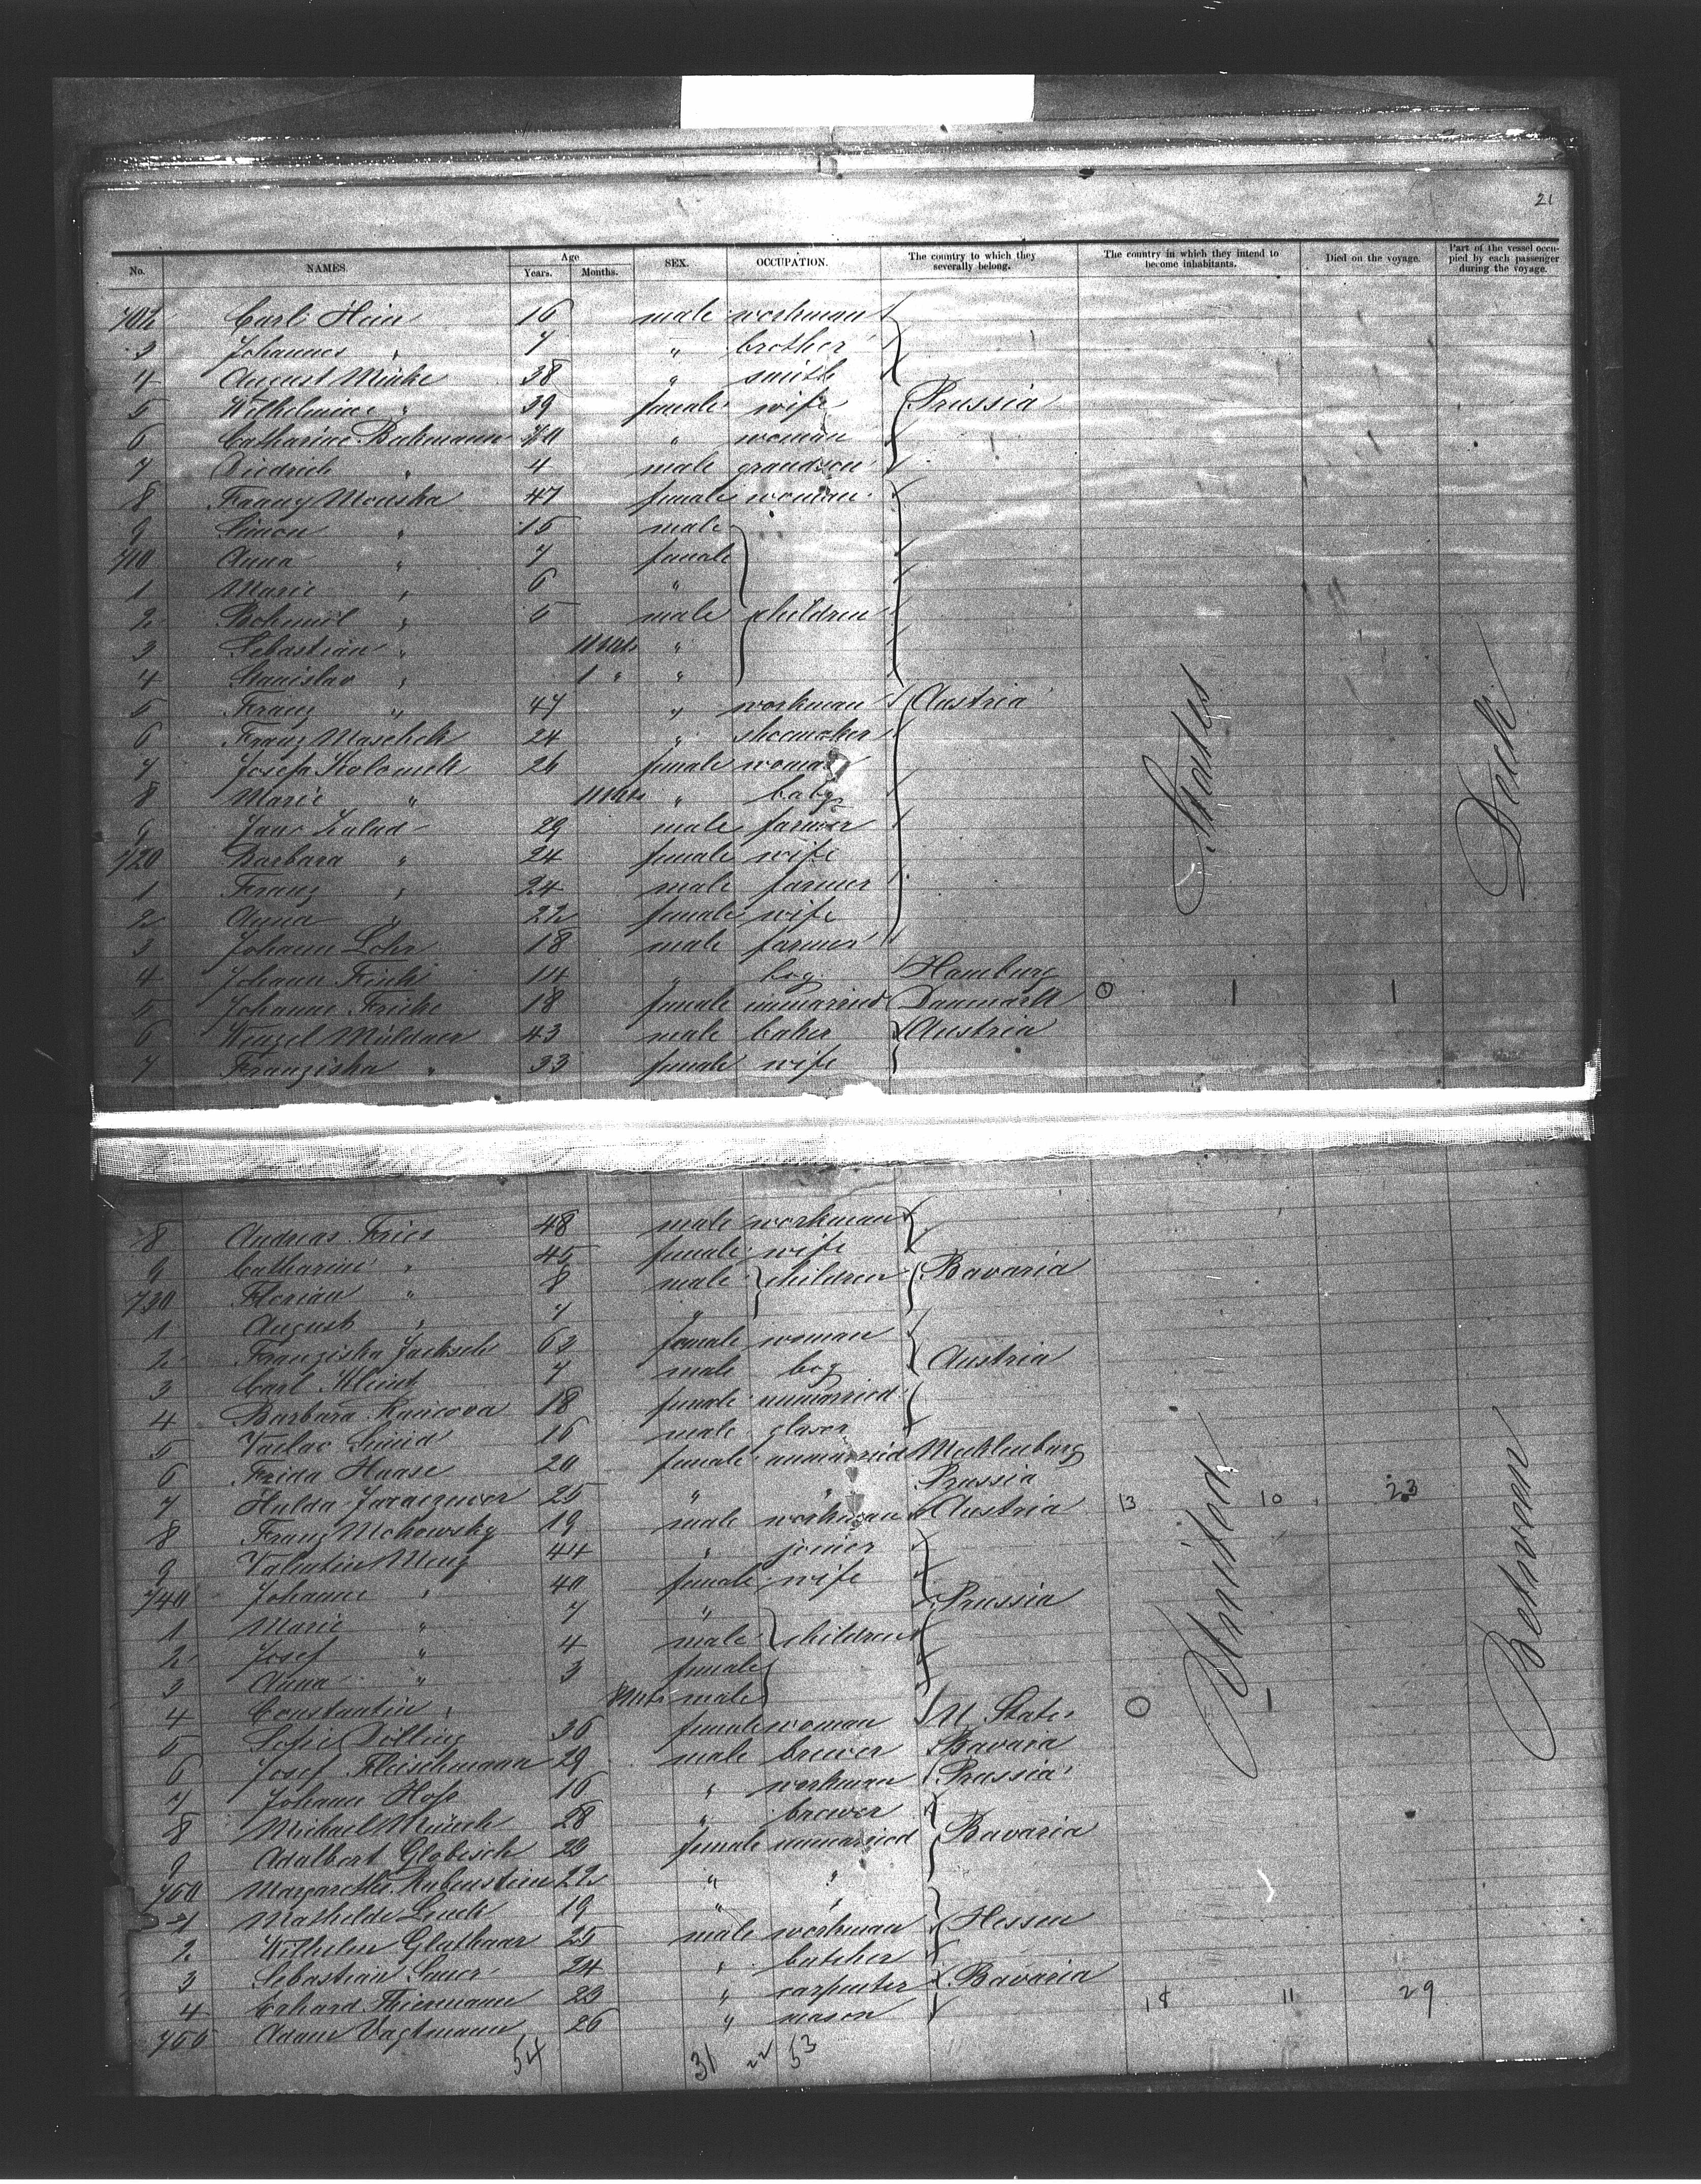 21
No. NAMES. Age Years. Months. SEX. OCCUPATION. The country to which they severally belong. The country in which they intend to become inhabitants. Died on the voyage. Part of the vessel occupied by each passenger during the voyage.
702 Carl Hein 16 male workman
3 Johannes " 7 " brother
4 August Minke 38 " smith
5 Wilhelmine " 39 female wife Prussia
6 Catharine 70 " woman
7 Diedrich " 4 male grandson
8 Fanny Mouska 47 female woman
9 Simon " 15 male
710 Anna " 7 female
1 Marie " 6 "
2 " 5 male children
3 Sebastian " 11 Mts "
4 Stanislav " 1 " "
5 Franz " 47 " workman Austria
6 Franz Maschek 24 " shoemaker
7 Josefa 26 female woman
8 Marie " 11 Mts " baby
9 29 male farmer
720 Barbara " 24 female wife
1 Franz " 24 male farmer
2 Anna " 22 female wife
3 Johann Lohr 18 male farmer
4 Johann 14 " boy Hamburg
5 Johanne Fricke 18 female unmarried Danmark 0 1 1
6 Wenzel Müldner 43 male baker Austria
7 Franziska " 33 female wife
States
Deck
8 Andreas Fries 48 male workman
9 Catharine " 45 female wife
730 Florian " 8 male children Bavaria
1 August " 7 "
2 Franziska Jacksch 63 female woman
3 Carl Kleint 7 male boy Austria
4 Barbara 18 female unmarried
5 Vaclav 16 male glaser
6 Frida Haase 20 female unmarried Mecklenburg
7 Hulda 25 " " Prussia
8 Franz 19 male workman Austria 13 10 23
9 Valentin 44 " joiner
740 Johanne " 40 female wife
1 Marie " 7 " Prussia
2 Josef " 4 male children
3 Anna " 3 female
4 Constantin " Mts male
5 36 female woman U. States 0 1
6 Josef Fleischmann 29 male brewer Bavaria
7 Johann 16 " workman Prussia
8 Michael Münch 28 " brewer
9 Adalbert Globisch 23 female unmarried Bavaria
750 Margarethe Rubenstein 22 " "
1 Mathilde 19 " "
2 Wilhelm Glathaar 25 male workman Hessen
3 Sebastian Sauer 24 " butcher
4 Erhard Thiermann 23 " carpenter Bavaria
755 Adam Vagtmann 26 " mason 18 11 29
United
Between
54 31 22 53